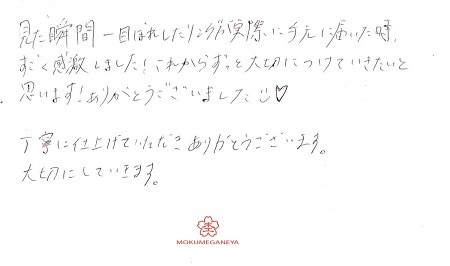 見た瞬間一目ぼれしたリングが実際に手元に届いた時、
すごく感激しました!これからずっと大切につけていきたいと
思います!ありがとうございました☺♡
丁寧に仕上げていただきありがとうございます。
大切にしていきます。
MOKUMEGANEYA